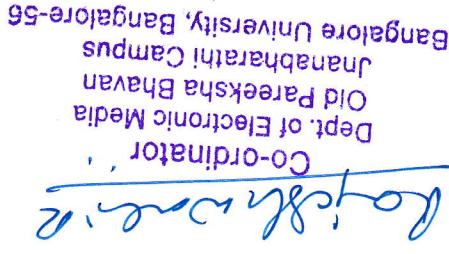 Rajeshwari R
Co-ordinator
Dept. of Electronic Media
Old Pareeksha Bhavan
Jnanabharathi Campus
Bangalore University, Bangalore-56